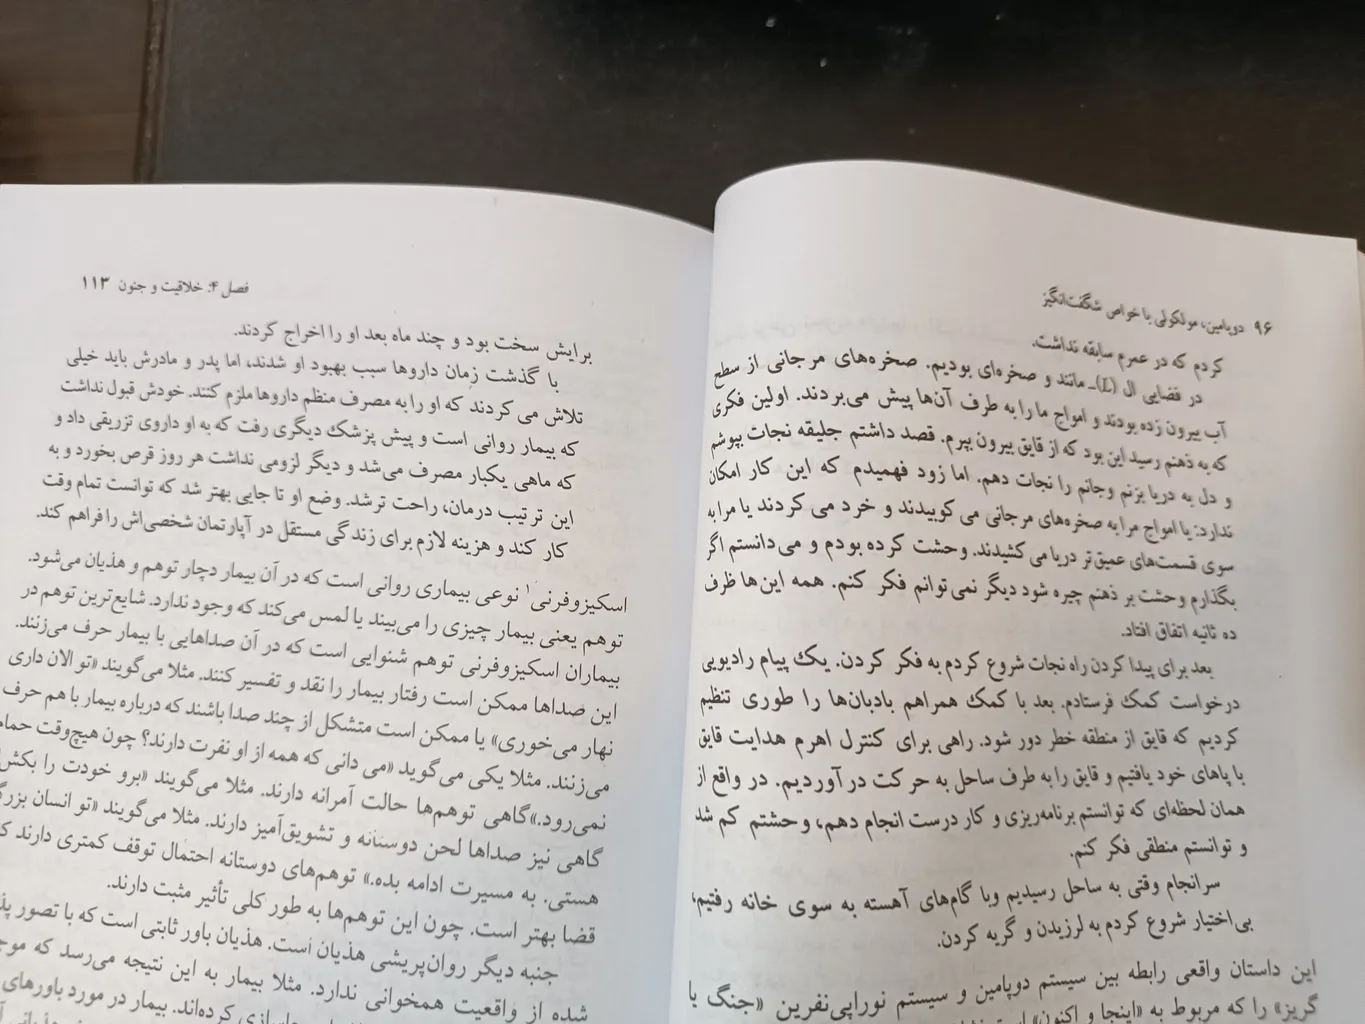 ۹۶ دوپامین، مولکولی با خواص شگفت‌انگیز
کردم که در عمرم سابقه نداشت.
در فضایی ال (L)ـ مانند و صخره‌ای بودیم. صخره‌های مرجانی از سطح
آب بیرون زده بودند و امواج ما را به طرف آن‌ها پیش می‌بردند. اولین فکری
که به ذهنم رسید این بود که از قایق بیرون بپرم. قصد داشتم جلیقه نجات بپوشم
و دل به دریا بزنم وجانم را نجات دهم. اما زود فهمیدم که این کار امکان
ندارد: یا امواج مرا به صخره‌های مرجانی می کوبیدند و خرد می کردند یا مرا به
سوی قسمت‌های عمیق‌تر دریا می کشیدند. وحشت کرده بودم و می‌دانستم اگر
بگذارم وحشت بر ذهنم چیره شود دیگر نمی‌توانم فکر کنم. همه این‌ها ظرف
ده ثانیه اتفاق افتاد.
بعد برای پیدا کردن راه نجات شروع کردم به فکر کردن. یک پیام رادیویی
درخواست کمک فرستادم. بعد با کمک همراهم بادبان‌ها را طوری تنظیم
کردیم که قایق از منطقه خطر دور شود. راهی برای کنترل اهرم هدایت قایق
با پاهای خود یافتیم و قایق را به طرف ساحل به حرکت در آوردیم. در واقع از
همان لحظه‌ای که توانستم برنامه‌ریزی و کار درست انجام دهم، وحشتم کم شد
و توانستم منطقی فکر کنم.
سرانجام وقتی به ساحل رسیدیم وبا گام‌های آهسته به سوی خانه رفتیم،
بی‌اختیار شروع کردم به لرزیدن و گریه کردن.
این داستان واقعی رابطه بین سیستم دوپامین و سیستم نوراپی‌نفرین «جنگ یا
گریز» را که مربوط به «اینجا و اکنون» است
فصل ۴: خلاقیت و جنون ۱۱۳
برایش سخت بود و چند ماه بعد او را اخراج کردند.
با گذشت زمان داروها سبب بهبود او شدند، اما پدر و مادرش باید خیلی
تلاش می کردند که او را به مصرف منظم داروها ملزم کنند. خودش قبول نداشت
که بیمار روانی است و پیش پزشک دیگری رفت که به او داروی تزریقی داد و
که ماهی یکبار مصرف می‌شد و دیگر لزومی نداشت هر روز قرص بخورد و به
این ترتیب درمان، راحت ترشد. وضع او تا جایی بهتر شد که توانست تمام وقت
کار کند و هزینه لازم برای زندگی مستقل در آپارتمان شخصی‌اش را فراهم کند.
اسکیزوفرنی۱ نوعی بیماری روانی است که در آن بیمار دچار توهم و هذیان می‌شود.
توهم یعنی بیمار چیزی را می‌بیند یا لمس می‌کند که وجود ندارد. شایع‌ترین توهم در
بیماران اسکیزوفرنی توهم شنوایی است که در آن صداهایی با بیمار حرف می‌زنند.
این صداها ممکن است رفتار بیمار را نقد و تفسیر کنند. مثلا می‌گویند «تو الان داری
نهار می‌خوری» یا ممکن است متشکل از چند صدا باشند که درباره بیمار با هم حرف
می‌زنند. مثلا یکی می‌گوید «می دانی که همه از او نفرت دارند؟ چون هیچ‌وقت حمام
نمی‌رود.»گاهی توهم‌ها حالت آمرانه دارند. مثلا می‌گویند «برو خودت را بکش
گاهی نیز صداها لحن دوستانه و تشویق‌آمیز دارند. مثلا می‌گویند «تو انسان
هستی. به مسیرت ادامه بده.» توهم‌های دوستانه احتمال توقف کمتری دارند
قضا بهتر است. چون این توهم‌ها به طور کلی تأثیر مثبت دارند.
جنبه دیگر روان‌پریشی هذیان است. هذیان باور ثابتی است که با تصور
شده از واقعیت همخوانی ندارد. مثلا بیمار به این نتیجه می‌رسد که
کرده‌اند. بیمار در مورد باورهای